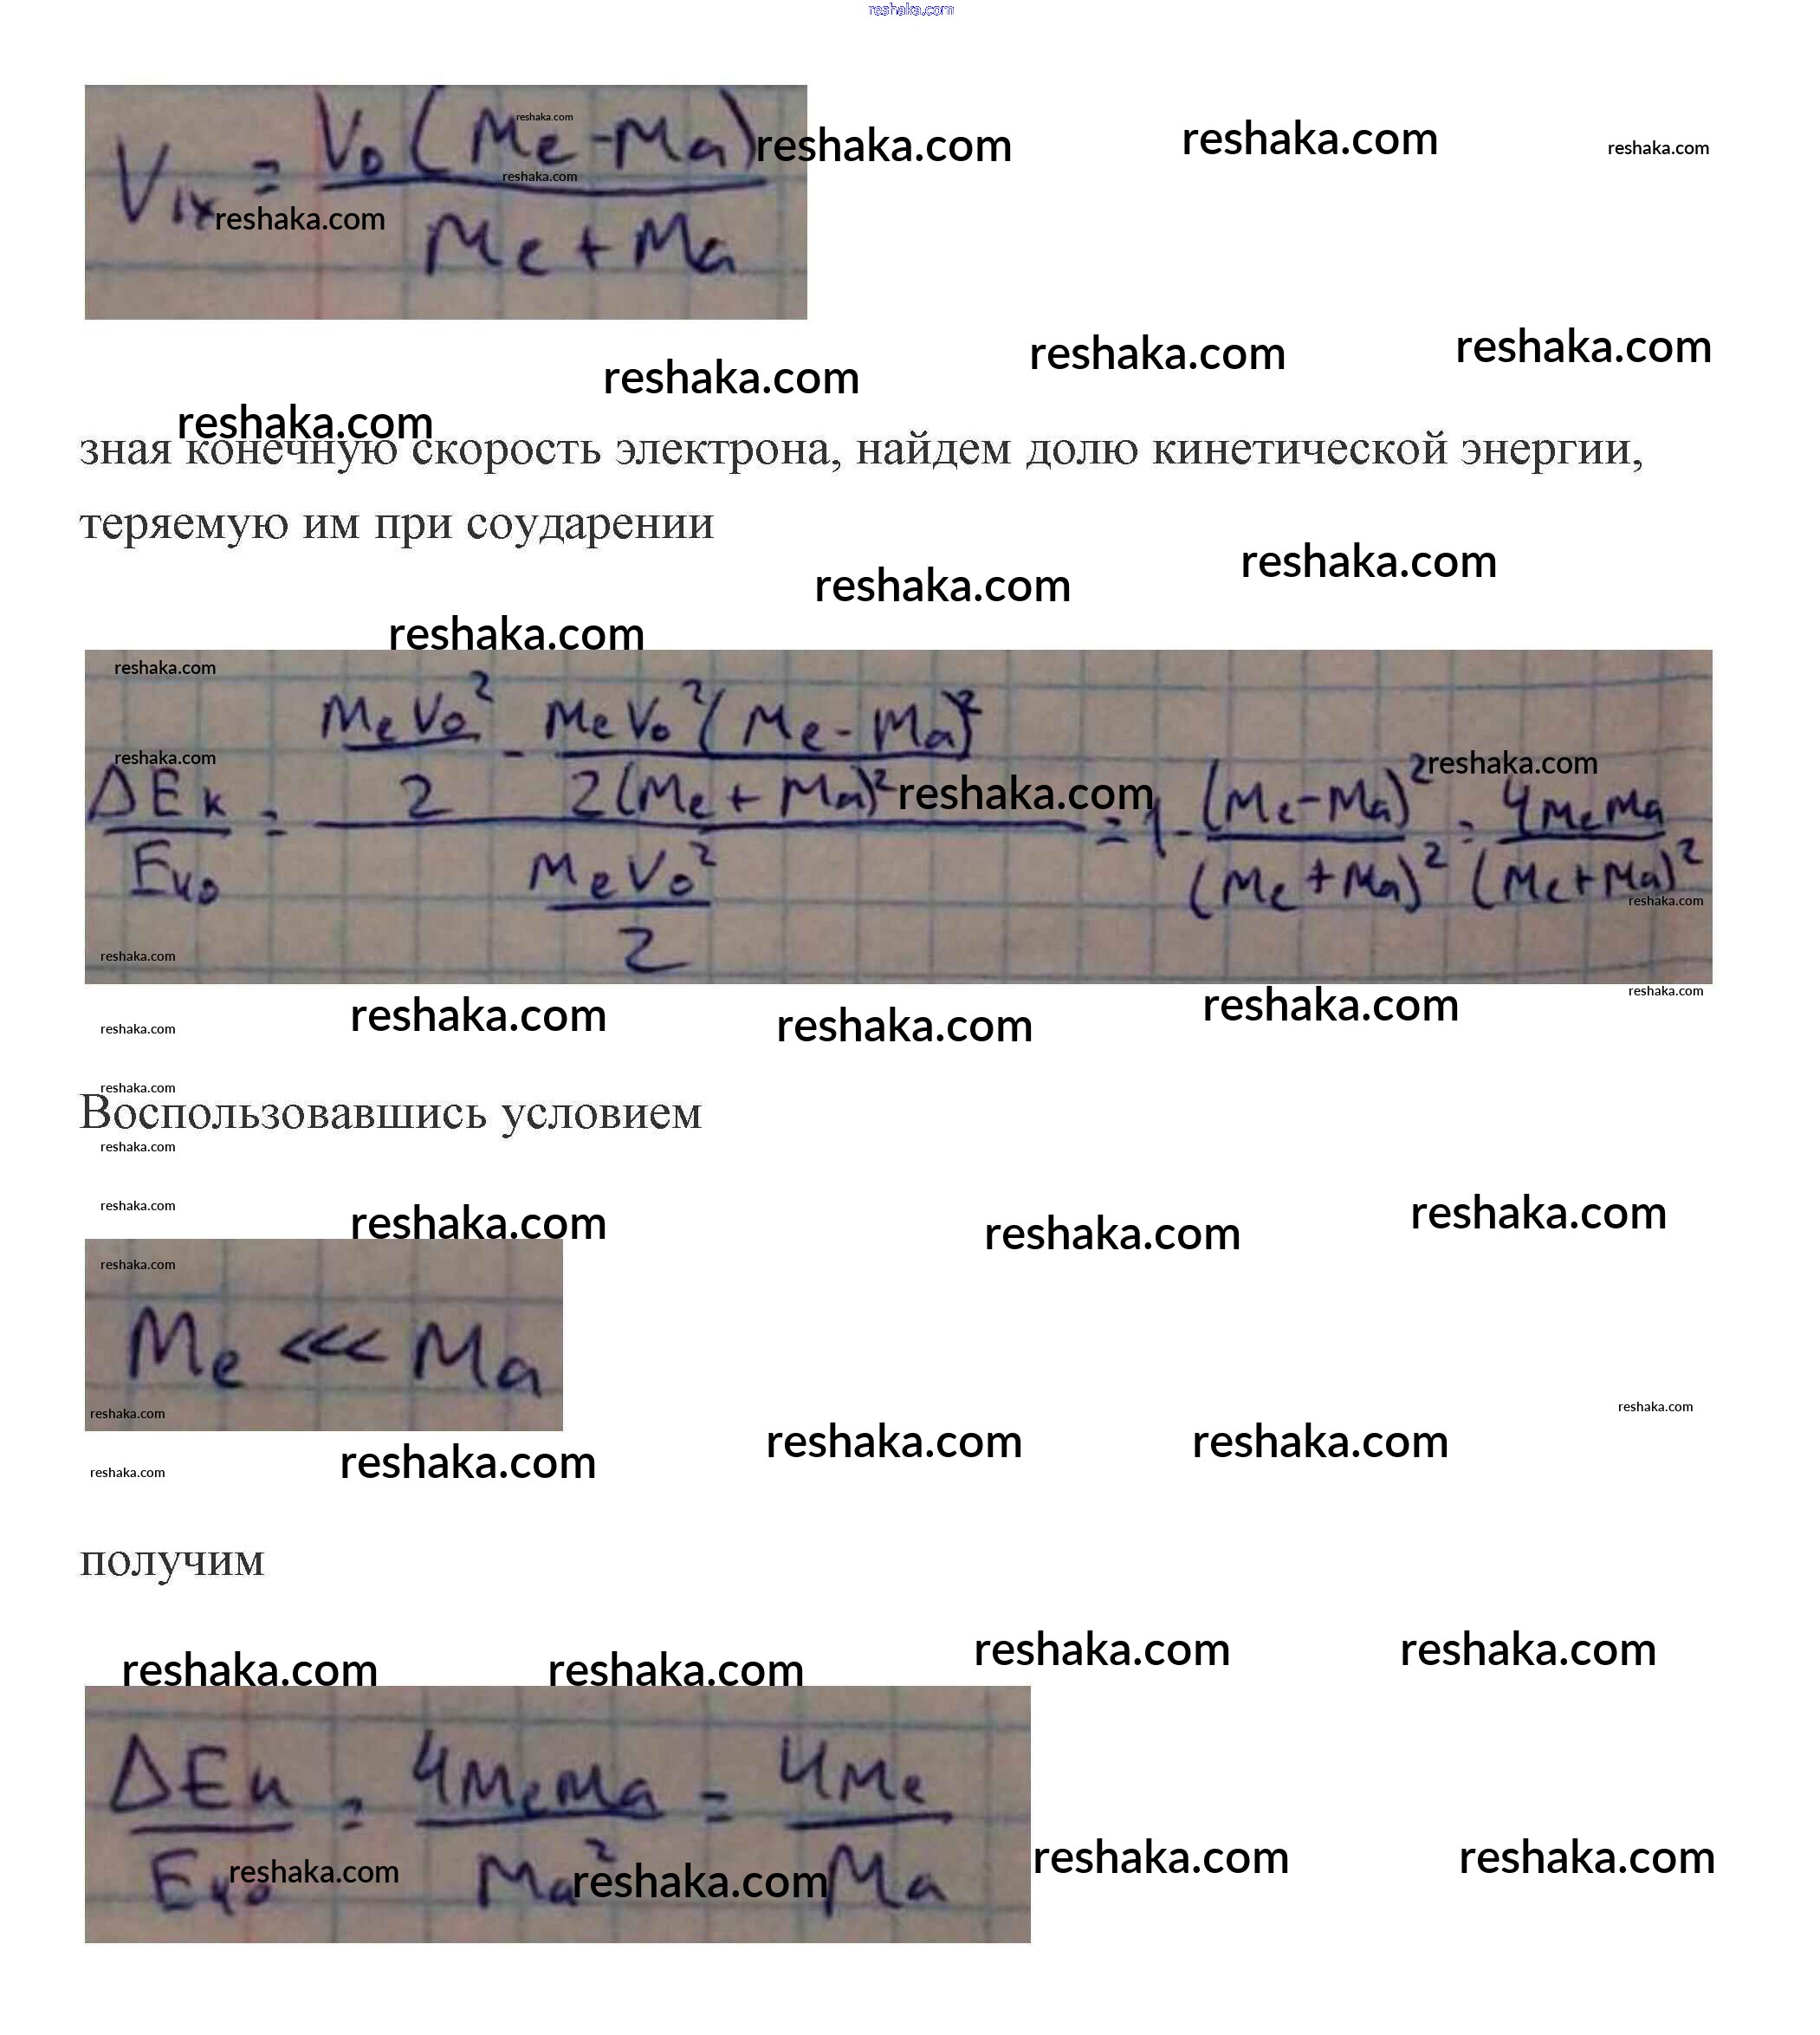 reshaka.com
V₁ₓ = V₀(Me - Ma) / (Me + Ma)
reshaka.com
reshaka.com
reshaka.com
reshaka.com
reshaka.com
reshaka.com
reshaka.com
reshaka.com
reshaka.com
reshaka.com
зная конечную скорость электрона, найдем долю кинетической энергии,
теряемую им при соударении
reshaka.com
reshaka.com
reshaka.com
reshaka.com
reshaka.com
reshaka.com
reshaka.com
ΔEк / Eк₀ = (MeV₀²/2 - MeV₀²(Me - Ma)² / 2(Me + Ma)²) / (MeV₀²/2) = 1 - (Me - Ma)² / (Me + Ma)² = 4MeMa / (Me + Ma)²
reshaka.com
reshaka.com
reshaka.com
reshaka.com
reshaka.com
reshaka.com
reshaka.com
reshaka.com
Воспользовавшись условием
reshaka.com
reshaka.com
reshaka.com
reshaka.com
reshaka.com
reshaka.com
Me <<< Ma
reshaka.com
reshaka.com
reshaka.com
reshaka.com
reshaka.com
reshaka.com
получим
reshaka.com
reshaka.com
reshaka.com
reshaka.com
ΔEк / Eк₀ = 4MeMa / Ma² = 4Me / Ma
reshaka.com
reshaka.com
reshaka.com
reshaka.com